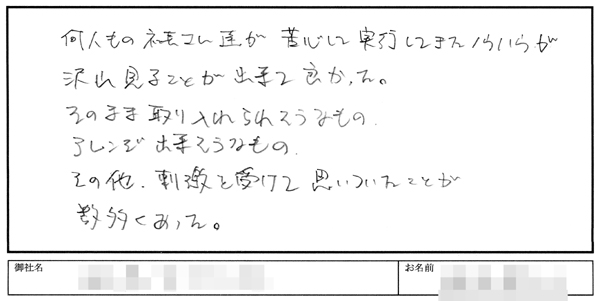 何人もの社長さん達が苦心して実行してきたノウハウが
沢山見ることが出来て良かった。
そのまま取り入れられそうなもの、
アレンジ出来そうなもの、
その他、刺激を受けて思いついたことが
数多くあった。
御社名
お名前